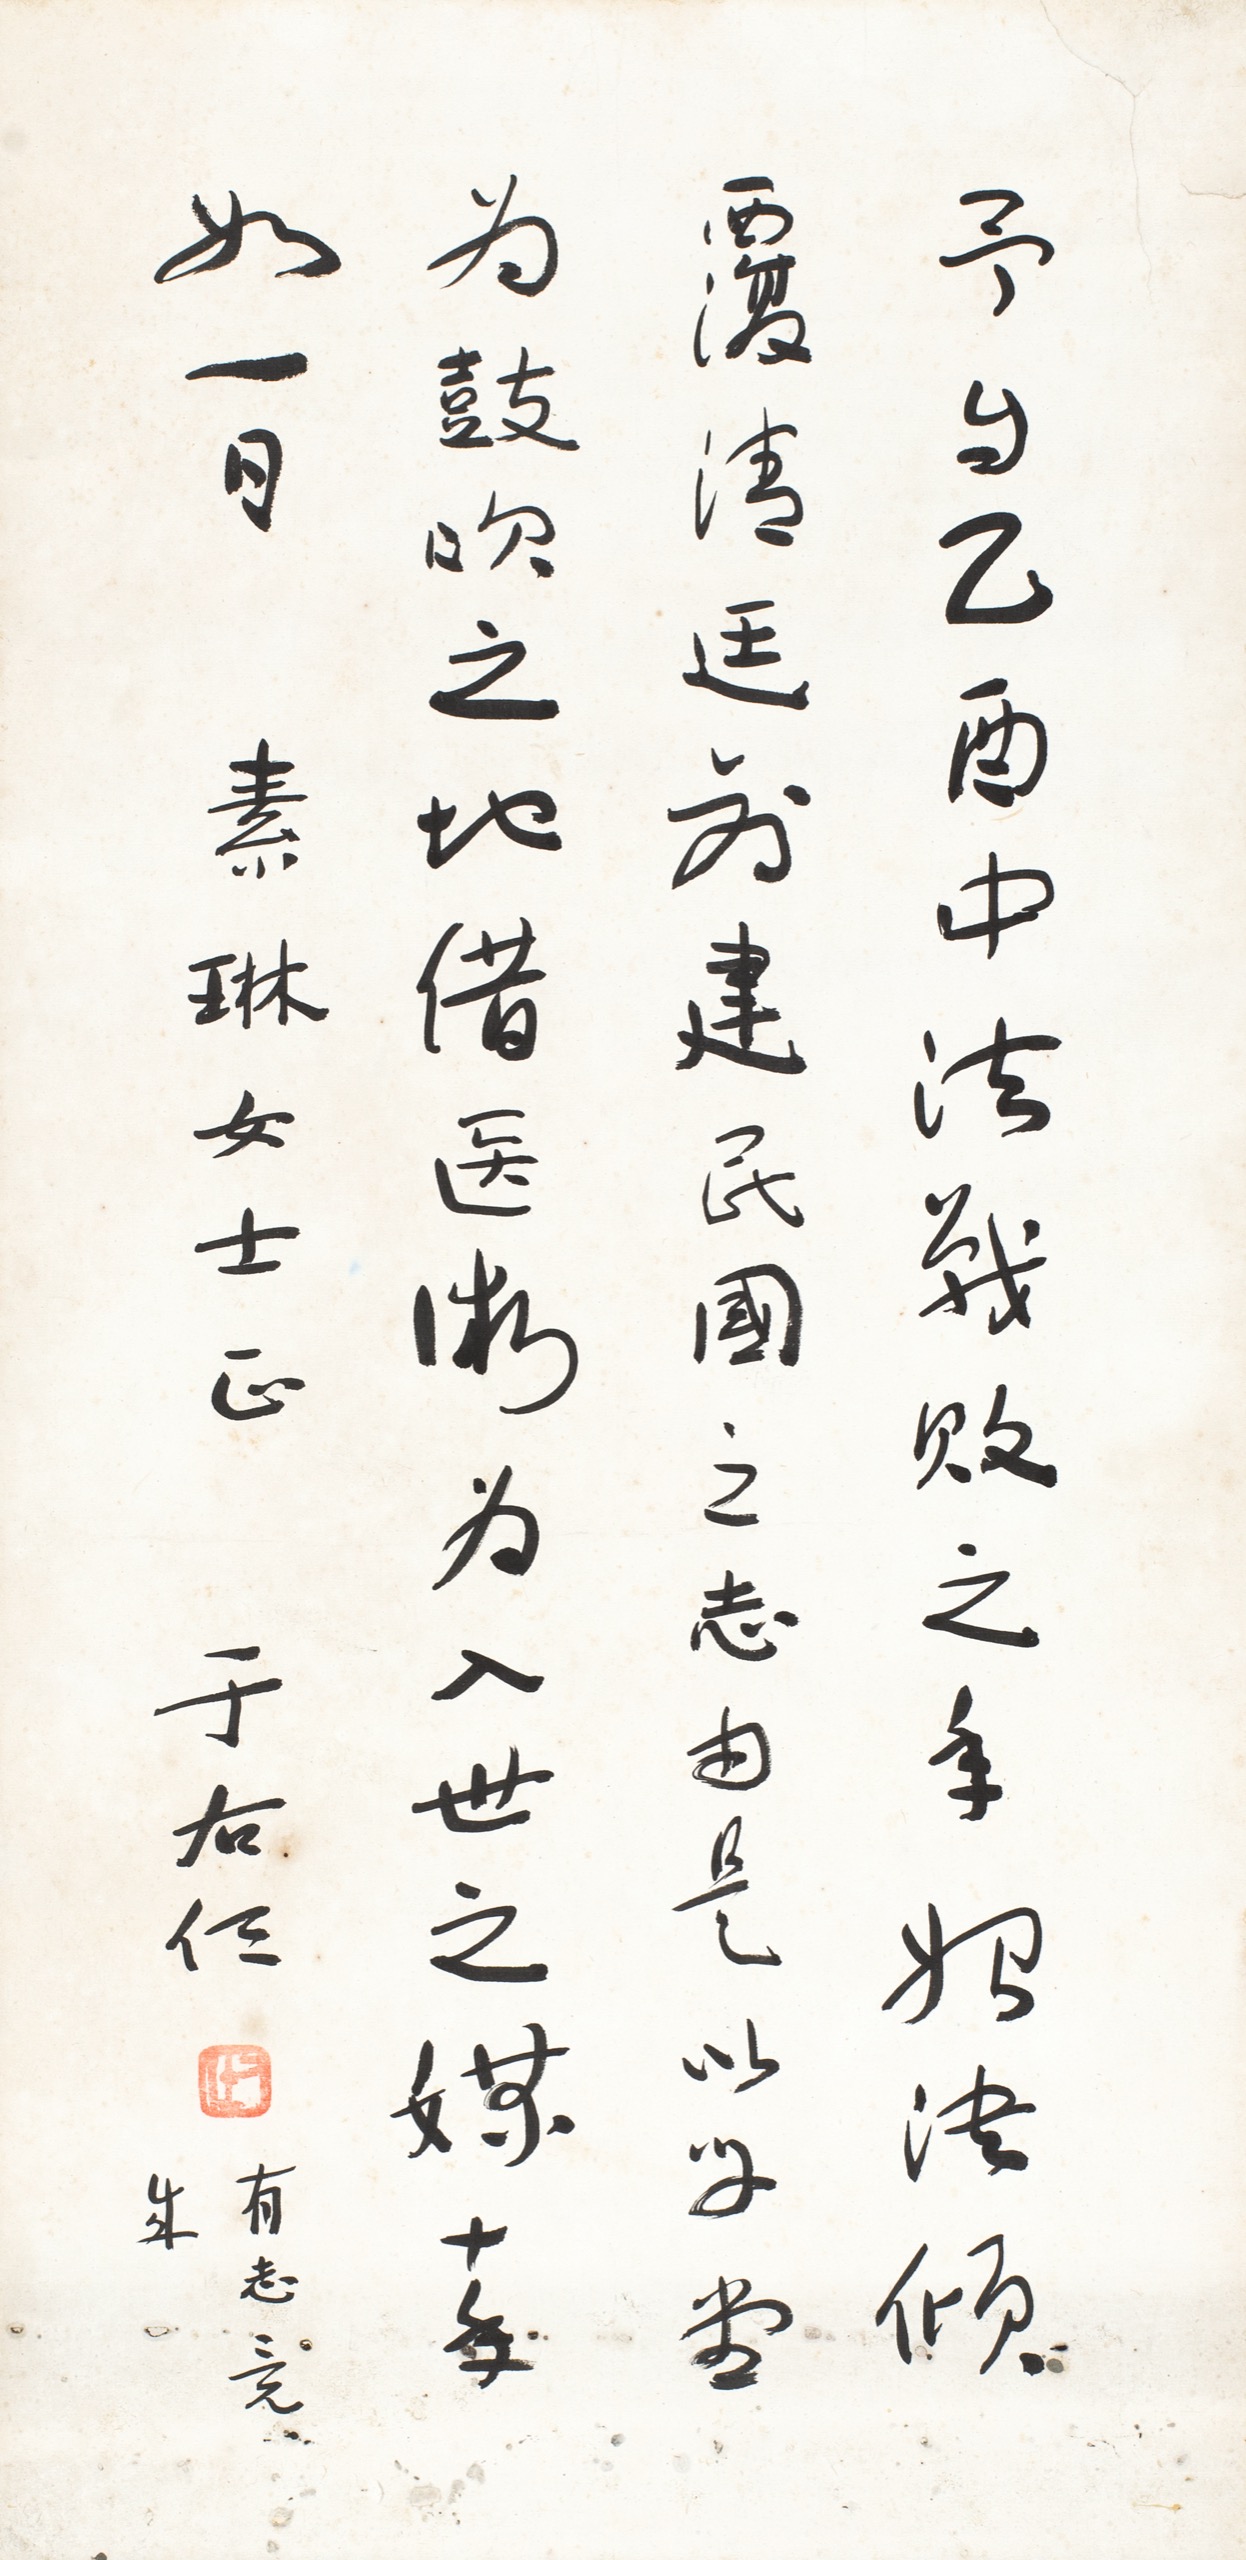 予自乙酉中法戰敗之年始決傾
覆清廷創建民國之志由是以學堂
为鼓吹之地借医術为入世之媒十年
如一日
素琳女士正
于右任
有志竟
成